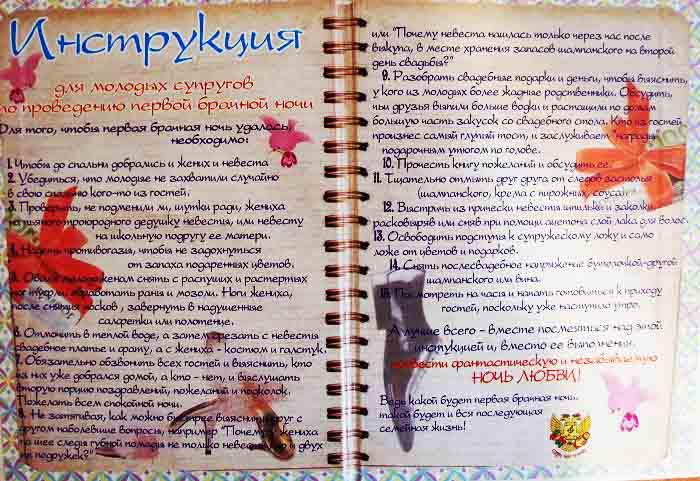 Инструкция
для молодых супругов
по проведению первой брачной ночи
Для того, чтобы первая брачная ночь удалась,
необходимо:
1. Чтобы до спальни добрались и жених и невеста
2. Убедиться, что молодые не захватили случайно
в свою спальню кого-то из гостей.
3. Проверить, не подменили ли, шутки ради, жениха
на пьяного троюродного дедушку невесты, или невесту
на школьную подругу ее матери.
4. Надеть противогазы, чтобы не задохнуться
от запаха подаренных цветов.
5. Обоим молодоженам снять с распухших и растертых
ног туфли, обработать раны и мозоли. Ноги жениха,
после снятия носков, завернуть в надушенные
салфетки или полотенце.
6. Отмочить в теплой воде, а затем срезать с невесты
свадебное платье и фату, а с жениха - костюм и галстук.
7. Обязательно обзвонить всех гостей и выяснить, кто
из них уже добрался домой, а кто - нет, и выслушать
вторую порцию поздравлений, пожеланий и подколок.
Пожелать всем спокойной ночи.
8. Не затягивая, как можно быстрее выяснить друг с
другом наболевшие вопросы, например "Почему у жениха
на шее следы губной помады не только невесты, но и двух
ее подружек?"
или "Почему невеста нашлась только через час после
выкупа, в месте хранения запасов шампанского на второй
день свадьбы?"
9. Разобрать свадебные подарки и деньги, чтобы выяснить,
у кого из молодых более жадные родственники. Обсудить,
чьи друзья выпили больше водки и растащили по домам
большую часть закусок со свадебного стола. Кто из гостей
произнес самый глупый тост, и заслуживает "награды"
подарочным утюгом по голове.
10. Прочесть книгу пожеланий и обсудить ее.
11. Тщательно отмыть друг друга от следов застолья
(шампанского, крема с пирожных, соуса)
12. Выстричь из прически невесты шпильки и заколки,
расковыряв или сняв при помощи ацетона слой лака для волос.
13. Освободить подступы к супружескому ложу и само
ложе от цветов и подарков.
14. Снять послесвадебное напряжение бутылочкой-другой
шампанского или вина.
15. Посмотреть на часы и начать готовиться к приходу
гостей, поскольку уже наступило утро.
А лучше всего - вместе посмеяться над этой
инструкцией и, вместо ее выполнения,
провести фантастическую и незабываемую
НОЧЬ ЛЮБВИ!
Ведь какой будет первая брачная ночь,
такой будет и вся последующая
семейная жизнь!